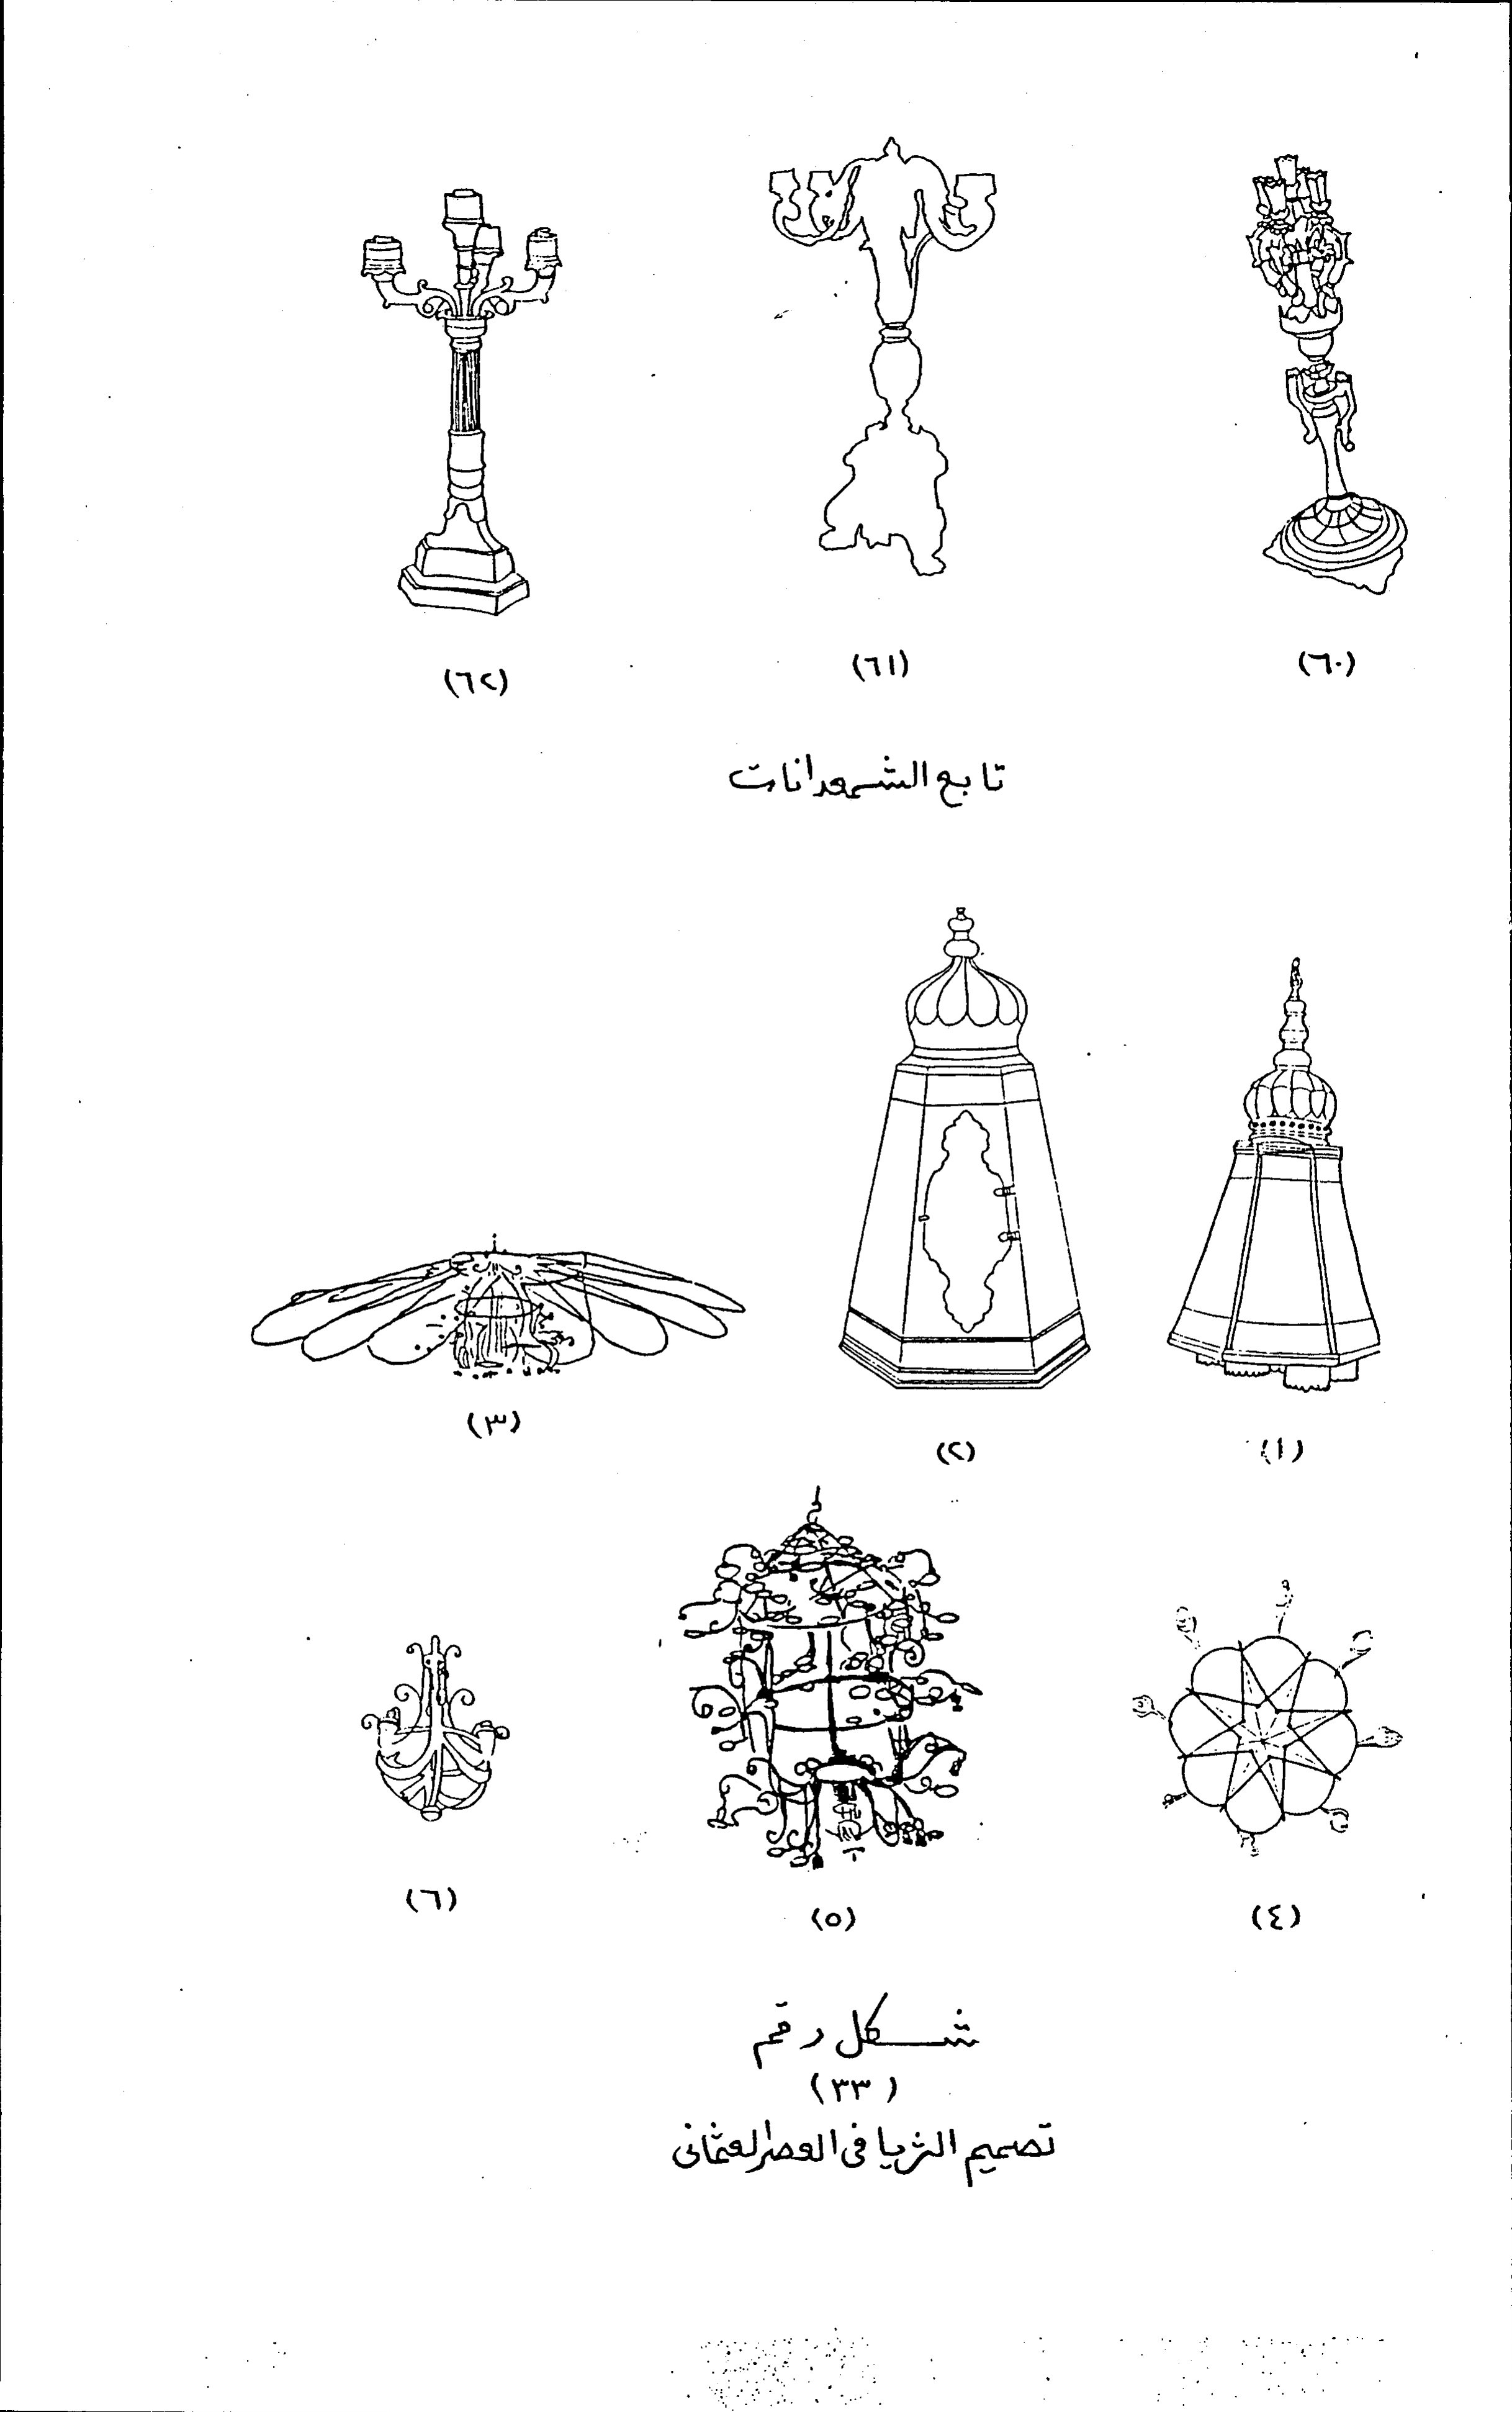 (٦٠) (٦١) (٦٢)
تابع الشمعدانات
(١) (٢) (٣)
(٤) (٥) (٦)
شكل رقم
(٣٣)
تصميم الثريا فى العصر العثمانى